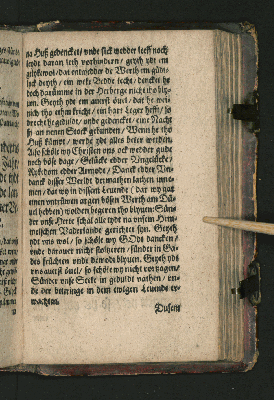 na Huß gedencket / vnde sick wedder leeff noch
leydt daran leth vorhindern / geyth ydt em
glückewol / dat entwedder de Werth em güdt-
lick deyth / ein weke Bedde hefft / dencket he
doch darümme in der Herberge nicht tho bly-
uen. Geyth ydt em auerst öuel / dat he wei-
nich tho ethen kricht / ein hart Leger hefft / so
brecht he gedult / vnde gedencket / eine Nacht
ys an neuen Stock gebunden / Wenn he tho
Huß kümpt / werde ydt alles beter werden.
Also schöle wy Christen vns ock wedder gude
noch böse dage / Gelücke edder Vngelücke /
Rykedom edder Armode / Danck edder Vn-
danck disser Werldt dermathen lathen inne-
men / dat wy in dissem Leuende ( dar wy gar
einen vntrüwen argen bösen Werth am Dü-
uel hebben) wolden begeren tho blyuen / Sün-
der vnse Herte schal alle tydt na vnsem Hem-
melschen Vaderlande gerichtet syn. Geyth
ydt vns wol / so schöle wy GOdt dancken /
vnde darauer nicht stolteren / sünder in Ga-
des früchten vnde demode blyuen. Geyth ydt
vns auerst öuel / so schöle wy nicht vorzagen /
Sünder vnse Seele in gedult vathen / vn-
de der beteringe in dem ewigen Leuende er-
wachten.
Dusent